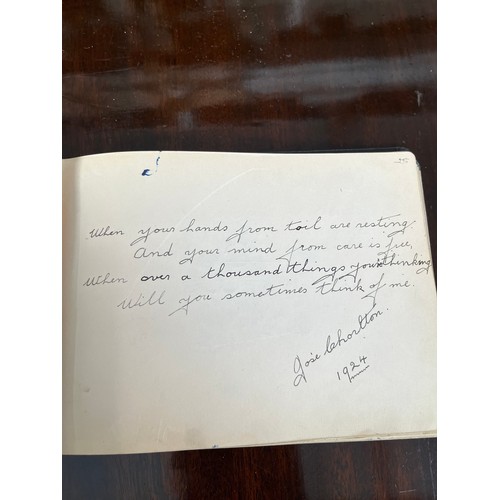 When your hands from toil are resting
And your mind from care is free,
When over a thousand things your thinking
Will you sometimes think of me.
Josie Chorlton.
1924